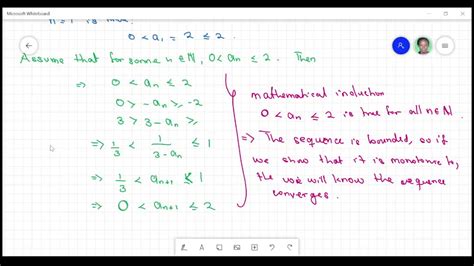 Microsoft Whiteboard
n = 1 is true.
0 < a₁ = 2 ≤ 2.
Assume that for some n ∈ ℕ, 0 < aₙ ≤ 2. Then
⇒ 0 < aₙ ≤ 2
0 > -aₙ ≥ -2
3 > 3 - aₙ ≥
⇒ 1/3 < 1/(3 - aₙ) ≤ 1
⇒ 1/3 < aₙ₊₁ ≤ 1
⇒ 0 < aₙ₊₁ ≤ 2
mathematical induction
0 < aₙ ≤ 2 is true for all n ∈ ℕ.
⇒ The sequence is bounded, so if
we show that it is monotone
the will know the sequence
converges.